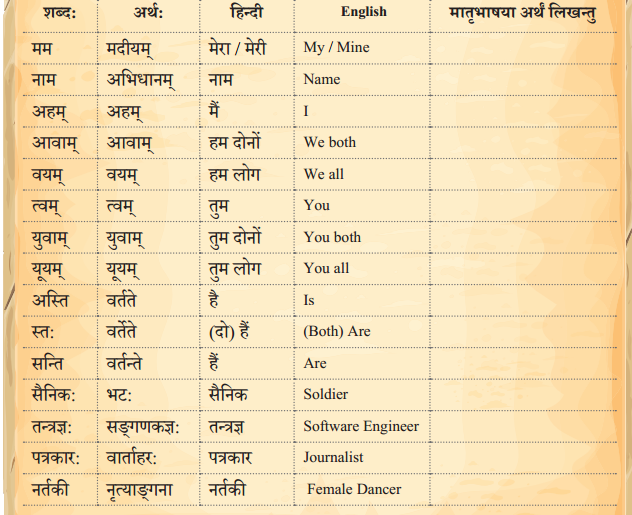 शब्द: अर्थ: हिन्दी English मातृभाषया अर्थं लिखन्तु
मम मदीयम् मेरा / मेरी My / Mine
नाम अभिधानम् नाम Name
अहम् अहम् मैं I
आवाम् आवाम् हम दोनों We both
वयम् वयम् हम लोग We all
त्वम् त्वम् तुम You
युवाम् युवाम् तुम दोनों You both
यूयम् यूयम् तुम लोग You all
अस्ति वर्तते है Is
स्त: वर्तेते (दो) हैं (Both) Are
सन्ति वर्तन्ते हैं Are
सैनिक: भट: सैनिक Soldier
तन्त्रज्ञ: सङ्गणकज्ञ: तन्त्रज्ञ Software Engineer
पत्रकार: वार्ताहर: पत्रकार Journalist
नर्तकी नृत्याङ्गना नर्तकी Female Dancer